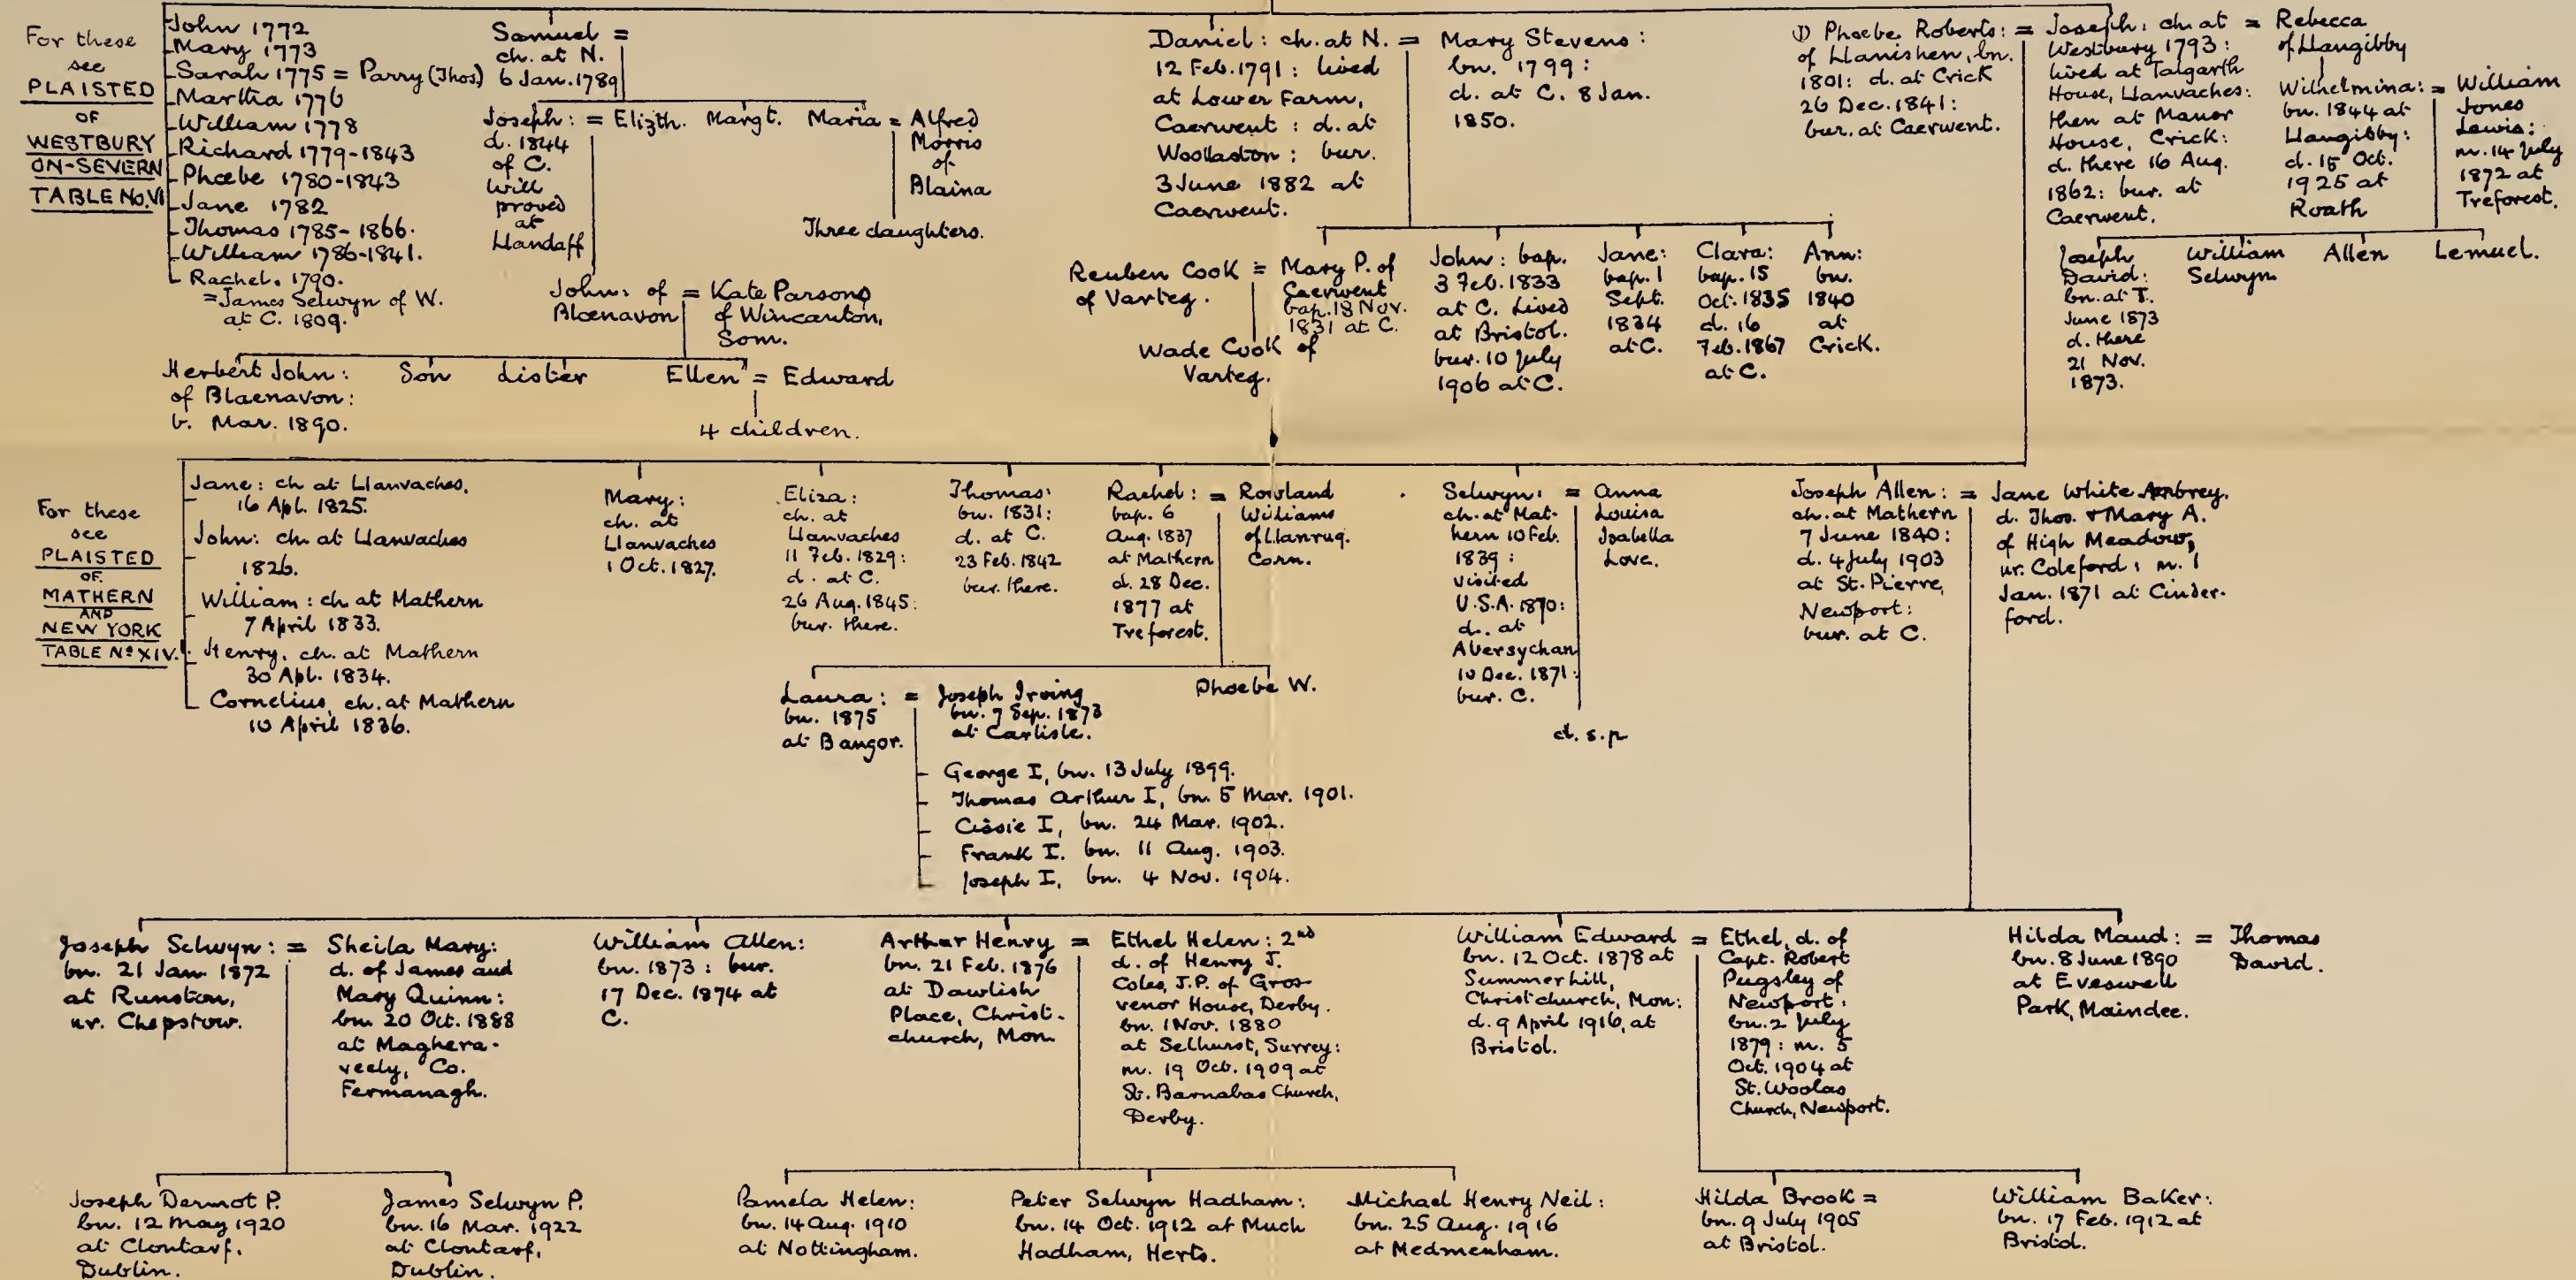 For these
see
PLAISTED
OF
WESTBURY
ON-SEVERN
TABLE No. VI
John 1772
Mary 1773
Sarah 1775 = Parry (Thos)
Martha 1776
William 1778
Richard 1779-1843
Phoebe 1780-1843
Jane 1782
Thomas 1785-1866.
William 1786-1841.
Rachel. 1790.
=James Selwyn of W.
at C. 1809.
Samuel =
ch. at N.
6 Jan. 1789
Joseph: = Elizth. Margt. Maria = Alfred
d. 1844
of C.
Will
proved
at
Llandaff
Morris
of
Blaina
Three daughters.
John: of = Kate Parsons
Blaenavon
of Wincanton,
Som.
Herbert John:
of Blaenavon:
b. Mar. 1890.
Son
Lister
Ellen = Edward
4 children.
Daniel: ch. at N. =
12 Feb. 1791: lived
at Lower Farm,
Caerwent: d. at
Woollaston: bur.
3 June 1882 at
Caerwent.
Mary Stevens:
bn. 1799:
d. at C. 8 Jan.
1850.
Reuben Cook =
of Varteg.
Mary P. of
Caerwent
bap. 18 Nov.
1831 at C.
Wade Cook of
Varteg.
John: bap.
3 Feb. 1833
at C. Lived
at Bristol.
bur. 10 July
1906 at C.
Jane:
bap. 1
Sept.
1834
at C.
Clara:
bap. 15
Oct. 1835
d. 16
Feb. 1867
at C.
Ann:
bn.
1840
at
Crick.
1) Phoebe Roberts: =
of Llanishen, bn.
1801: d. at Crick
26 Dec. 1841:
bur. at Caerwent.
Joseph: ch. at =
Westbury 1793:
lived at Talgarth
House, Llanvaches:
then at Manor
House, Crick:
d. there 16 Aug.
1862: bur. at
Caerwent.
Rebecca
of Llangibby
Wilhelmina: =
bn. 1844 at
Llangibby:
d. 15 Oct.
1925 at
Roath
William
Jones
Lewis:
m. 14 July
1872 at
Treforest.
Joseph
David:
bn. at T.
June 1873
d. there
21 Nov.
1873.
William
Selwyn
Allen
Lemuel.
For these
see
PLAISTED
OF
MATHERN
AND
NEW YORK
TABLE No XIV.
Jane: ch at Llanvaches.
16 Apl. 1825.
John: ch at Llanvaches
1826.
William: ch at Mathern
7 April 1833.
Henry. ch. at Mathern
30 Apl. 1834.
Cornelius, ch. at Mathern
10 April 1836.
Mary:
ch. at
Llanvaches
1 Oct. 1827.
Eliza:
ch. at
Llanvaches
11 Feb. 1829:
d. at C.
26 Aug. 1845:
bur. there.
Thomas:
bn. 1831:
d. at C.
23 Feb. 1842
bur. there.
Rachel: =
bap. 6
Aug. 1837
at Mathern
d. 28 Dec.
1877 at
Treforest.
Rowland
Williams
of Llanrug.
Carn.
Laura: =
bn. 1875
at Bangor.
Joseph Irving
bn. 7 Sep. 1873
at Carlisle.
Phoebe W.
George I, bn. 13 July 1899.
Thomas Arthur I, bn. 5 Mar. 1901.
Cissie I, bn. 24 Mar. 1902.
Frank I. bn. 11 Aug. 1903.
Joseph I, bn. 4 Nov. 1904.
Selwyn: =
ch. at Mat-
hern 10 Feb.
1839:
visited
U.S.A. 1870:
d. at
Abersychan
10 Dec. 1871:
bur. C.
Anna
Louisa
Isabella
Love.
d. s. p
Joseph Allen: =
ch. at Mathern
7 June 1840:
d. 4 July 1903
at St. Pierre,
Newport:
bur. at C.
Jane White Ambrey.
d. Thos. & Mary A.
of High Meadow,
nr. Coleford: m. 1
Jan. 1871 at Cinder-
ford.
Joseph Selwyn: =
bn. 21 Jan. 1872
at Runston,
nr. Chepstow.
Sheila Mary:
d. of James and
Mary Quinn:
bn. 20 Oct. 1888
at Maghera-
veely, Co.
Fermanagh.
William Allen:
bn. 1873: bur.
17 Dec. 1874 at
C.
Arthur Henry =
bn. 21 Feb. 1876
at Dawlish
Place, Christ-
church, Mon.
Ethel Helen: 2nd
d. of Henry J.
Coles, J.P. of Gros-
venor House, Derby.
bn. 1 Nov. 1880
at Selhurst, Surrey:
m. 19 Oct. 1909 at
St. Barnabas Church,
Derby.
William Edward =
bn. 12 Oct. 1878 at
Summerhill,
Christchurch, Mon:
d. 9 April 1916, at
Bristol.
Ethel, d. of
Capt. Robert
Pugsley of
Newport:
bn. 2 July
1879: m. 5
Oct. 1904 at
St. Woolas
Church, Newport.
Hilda Maud: =
bn. 8 June 1890
at Eveswell
Park, Maindee.
Thomas
David.
Joseph Dermot P.
bn. 12 May 1920
at Clontarf,
Dublin.
James Selwyn P.
bn. 16 Mar. 1922
at Clontarf,
Dublin.
Pamela Helen:
bn. 14 Aug. 1910
at Nottingham.
Peter Selwyn Hadham:
bn. 14 Oct. 1912 at Much
Hadham, Herts.
Michael Henry Neil:
bn. 25 Aug. 1916
at Medmenham.
Hilda Brook =
bn. 9 July 1905
at Bristol.
William Baker:
bn. 17 Feb. 1912 at
Bristol.